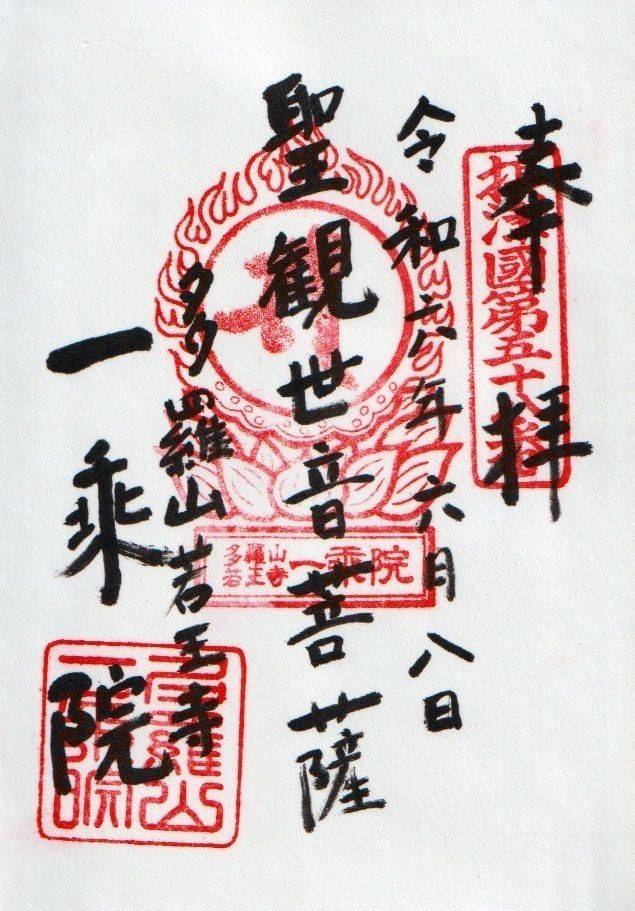 奉拝
摂津國第五十八番
令和六年六月八日
聖観世音菩薩
多羅山若王寺
一乗院
多羅山
若王寺
一乗院
多羅山
一乗院